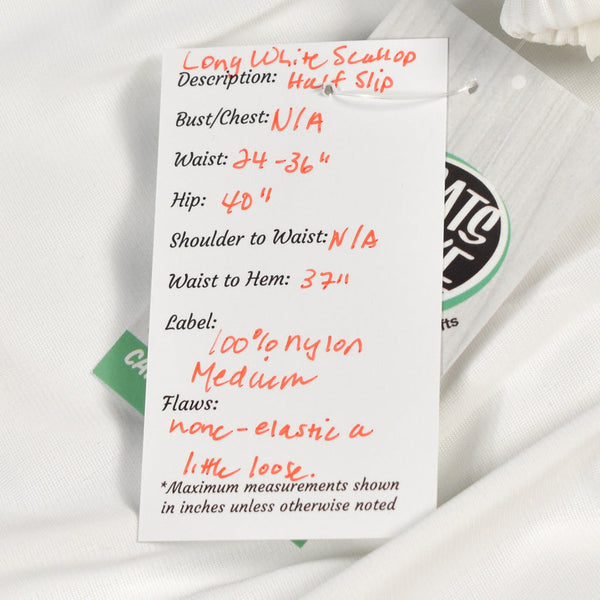 Long White Scallop
Description: Half Slip
Bust/Chest: N/A
Waist: 24-36"
Hip: 40"
Shoulder to Waist: N/A
Waist to Hem: 37"
Label:
100% nylon
Medium
Flaws:
none - elastic a
little loose.
*Maximum measurements shown
in inches unless otherwise noted